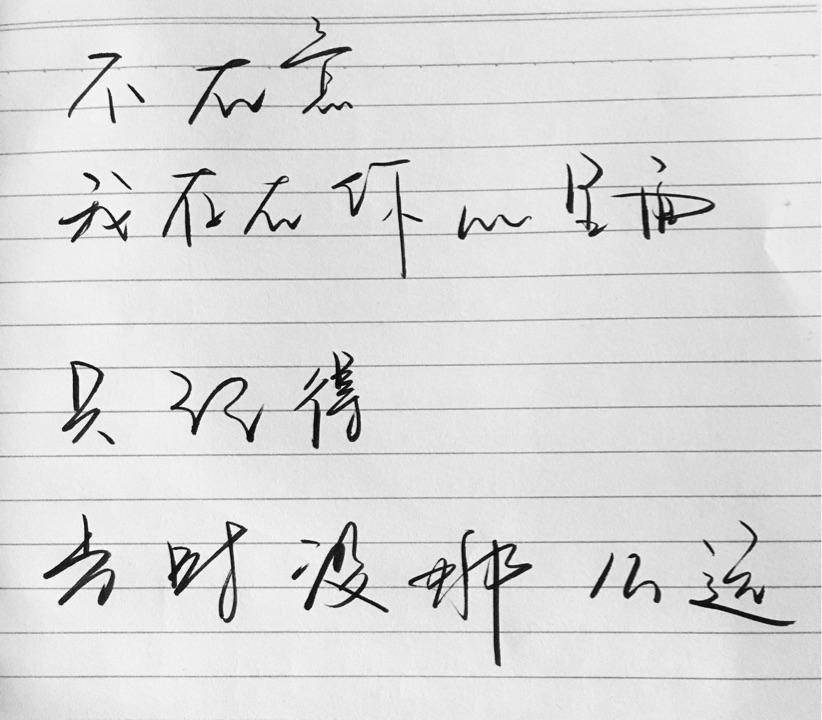 不在意
我存在你心里面
只记得
当时没那么远